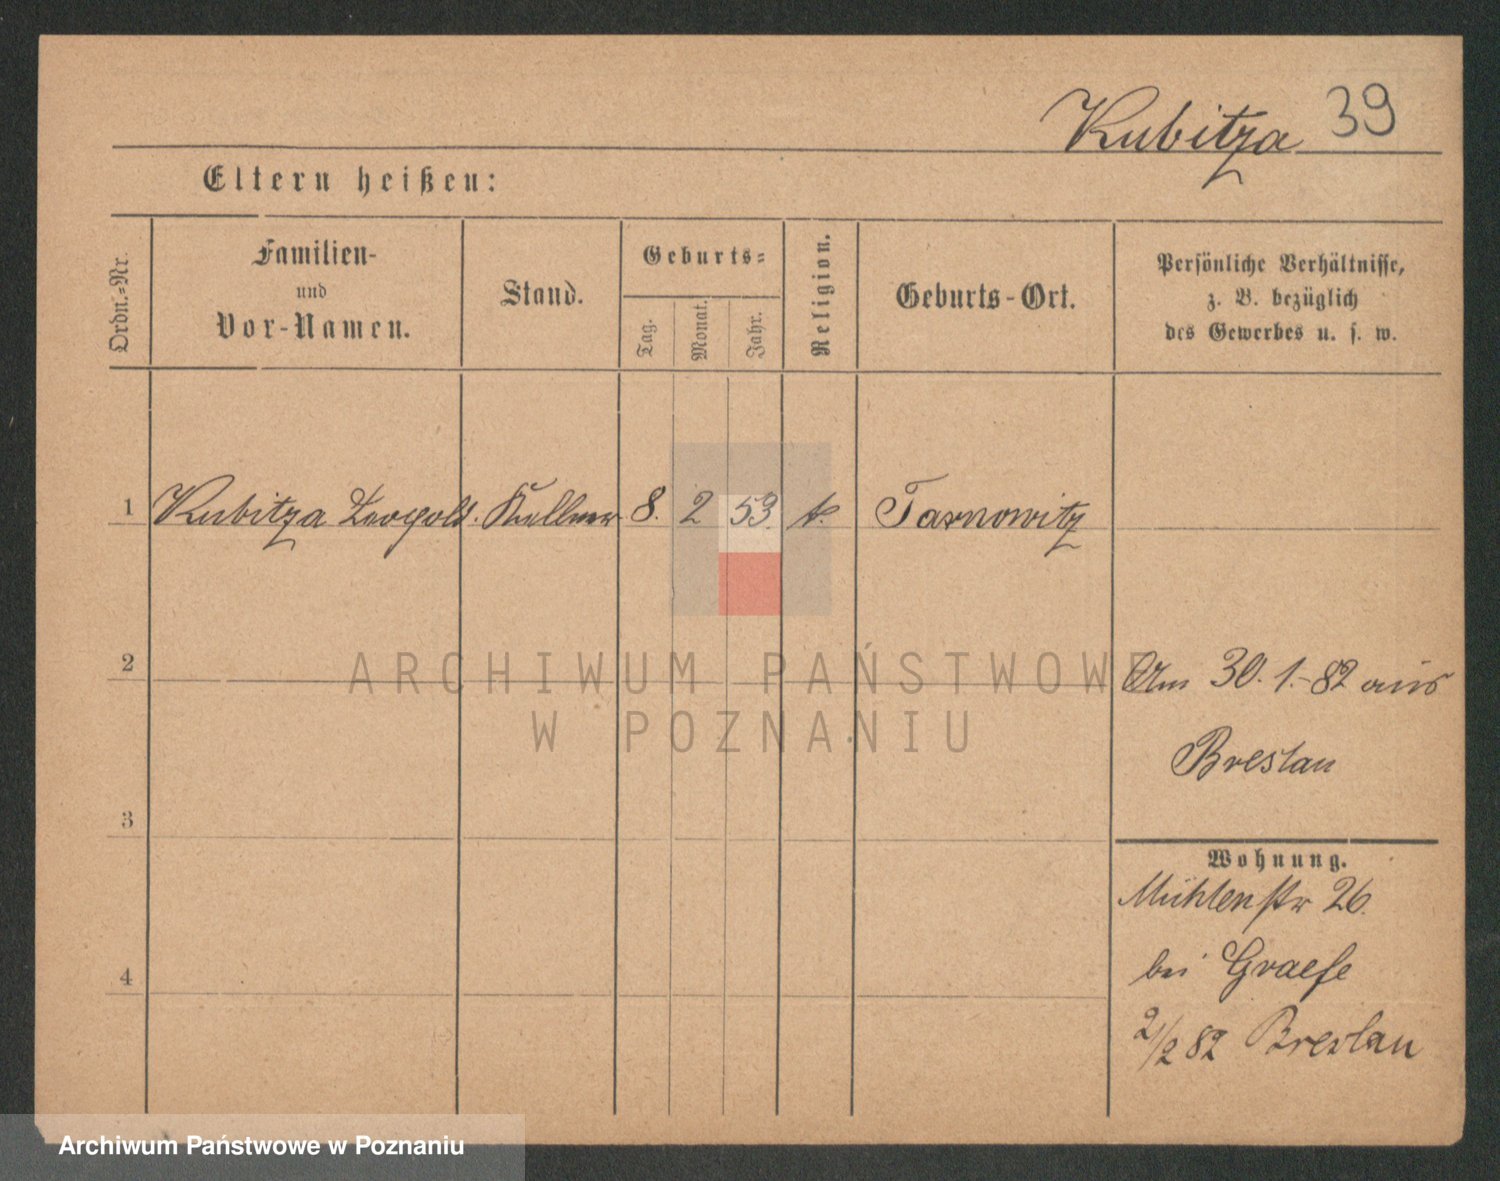 Kubitza 39
Eltern heißen:
Ordn.-Nr.
Familien-
und
Vor-Namen.
Stand.
Geburts-
Tag.
Monat.
Jahr.
Religion.
Geburts-Ort.
Persönliche Verhältnisse,
z. B. bezüglich
des Gewerbes u. s. w.
1 Kubitza Leopold. Kellner 8. 2 53. k. Tarnowitz
2
Am 30. 1.-82 aus
Breslau
3
Wohnung.
Mühlenstr 26.
bei Graefe
4
2/2 82 Breslau
ARCHIWUM PAŃSTWOWE
W POZNANIU
Archiwum Państwowe w Poznaniu